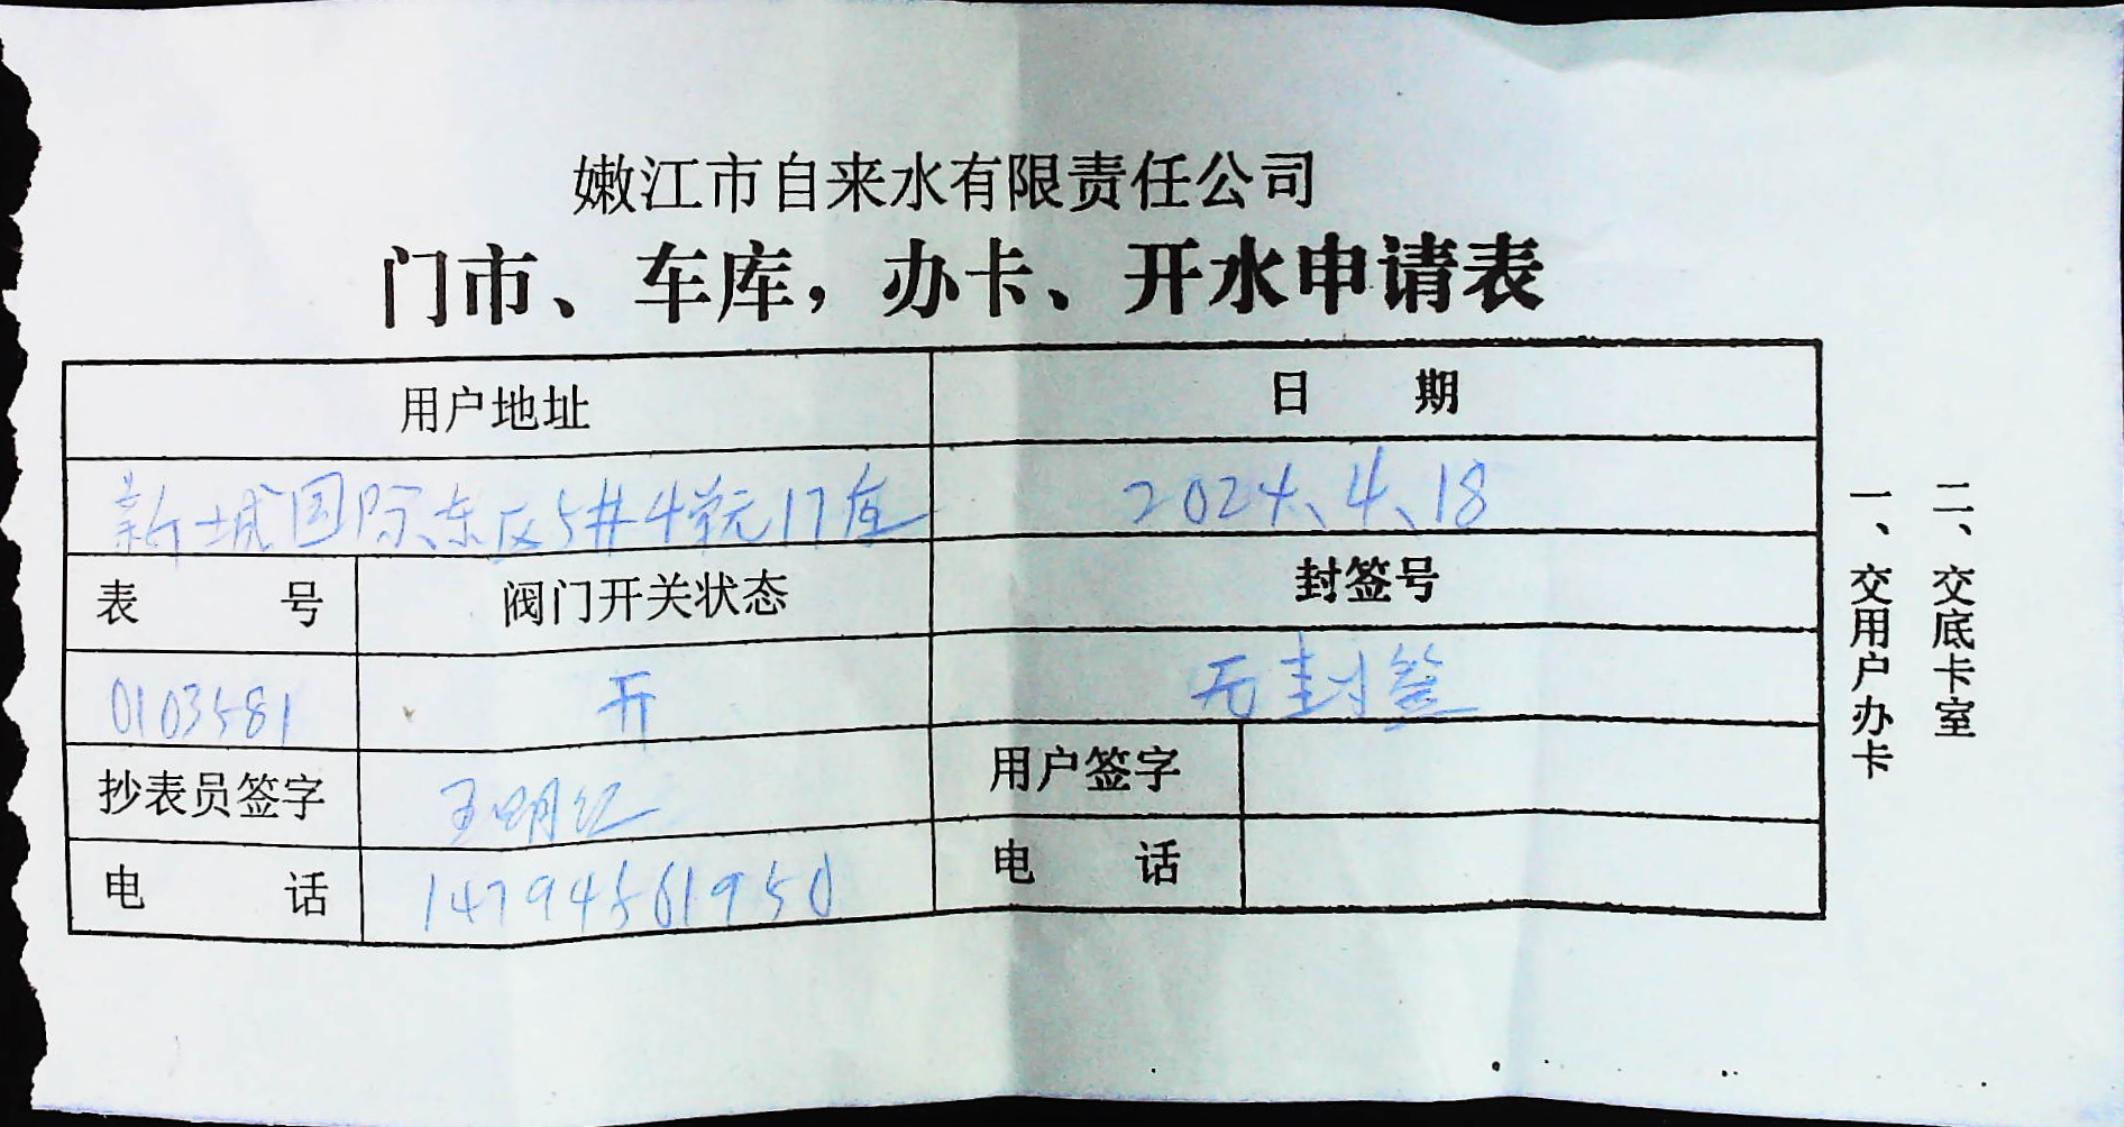 嫩江市自来水有限责任公司
门市、车库，办卡、开水申请表
用户地址 日 期
新城国际东区5#4单元17库 2024、4、18
表 号 阀门开关状态 封签号
0103581 开 无封签
抄表员签字 王明红 用户签字
电 话 14794561950 电 话
一、交用户办卡
二、交底卡室